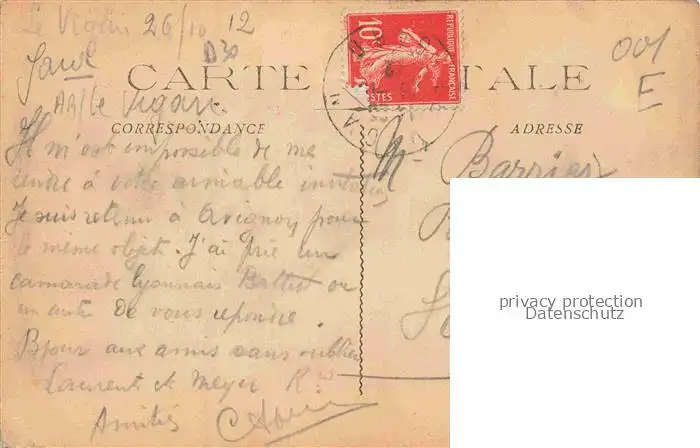 Le Vigan 26/10 12
Gard
D30
AR/Le Vigan
001
E
CARTE POSTALE
REPUBLIQUE FRANÇAISE
10
POSTES
CORRESPONDANCE
ADRESSE
Il m'est impossible de me
rendre à votre aimable invitation
Je suis retenu à Avignon pour
le même objet. J'ai prié un
camarade Lyonnais Battut ou
un autre de vous repondre.
Bjour aux amis sans oublier
Laurent et Meyer
Amitiés
M Barrier
privacy protection
Datenschutz